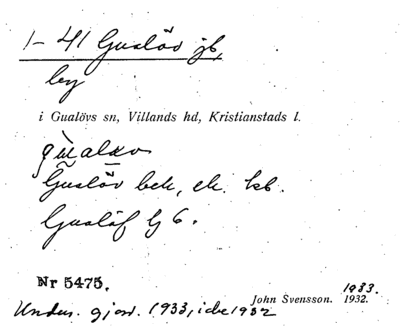 1-41 Gualöv jb,
by
i Gualövs sn, Villands hd, Kristianstads l.
Gualöv bek, ek. kb.
Gualöf Gj 6.
Nr 5475.
1933.
John Svensson. 1932.
Unders. gjord. 1933, icke 1932